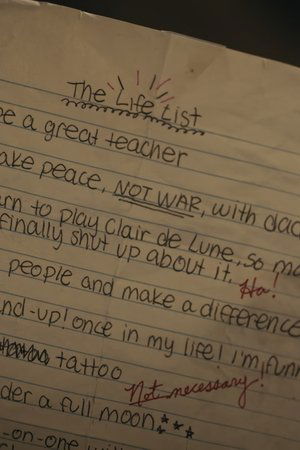 The Life List
be a great teacher
ake peace, NOT WAR, with dad
rn to play Clair de Lune, so m
finally shut up about it. Ha!
people and make a difference
nd-up! once in my life! I'm funn
tattoo Not necessary!
der a full moon
-on-one with